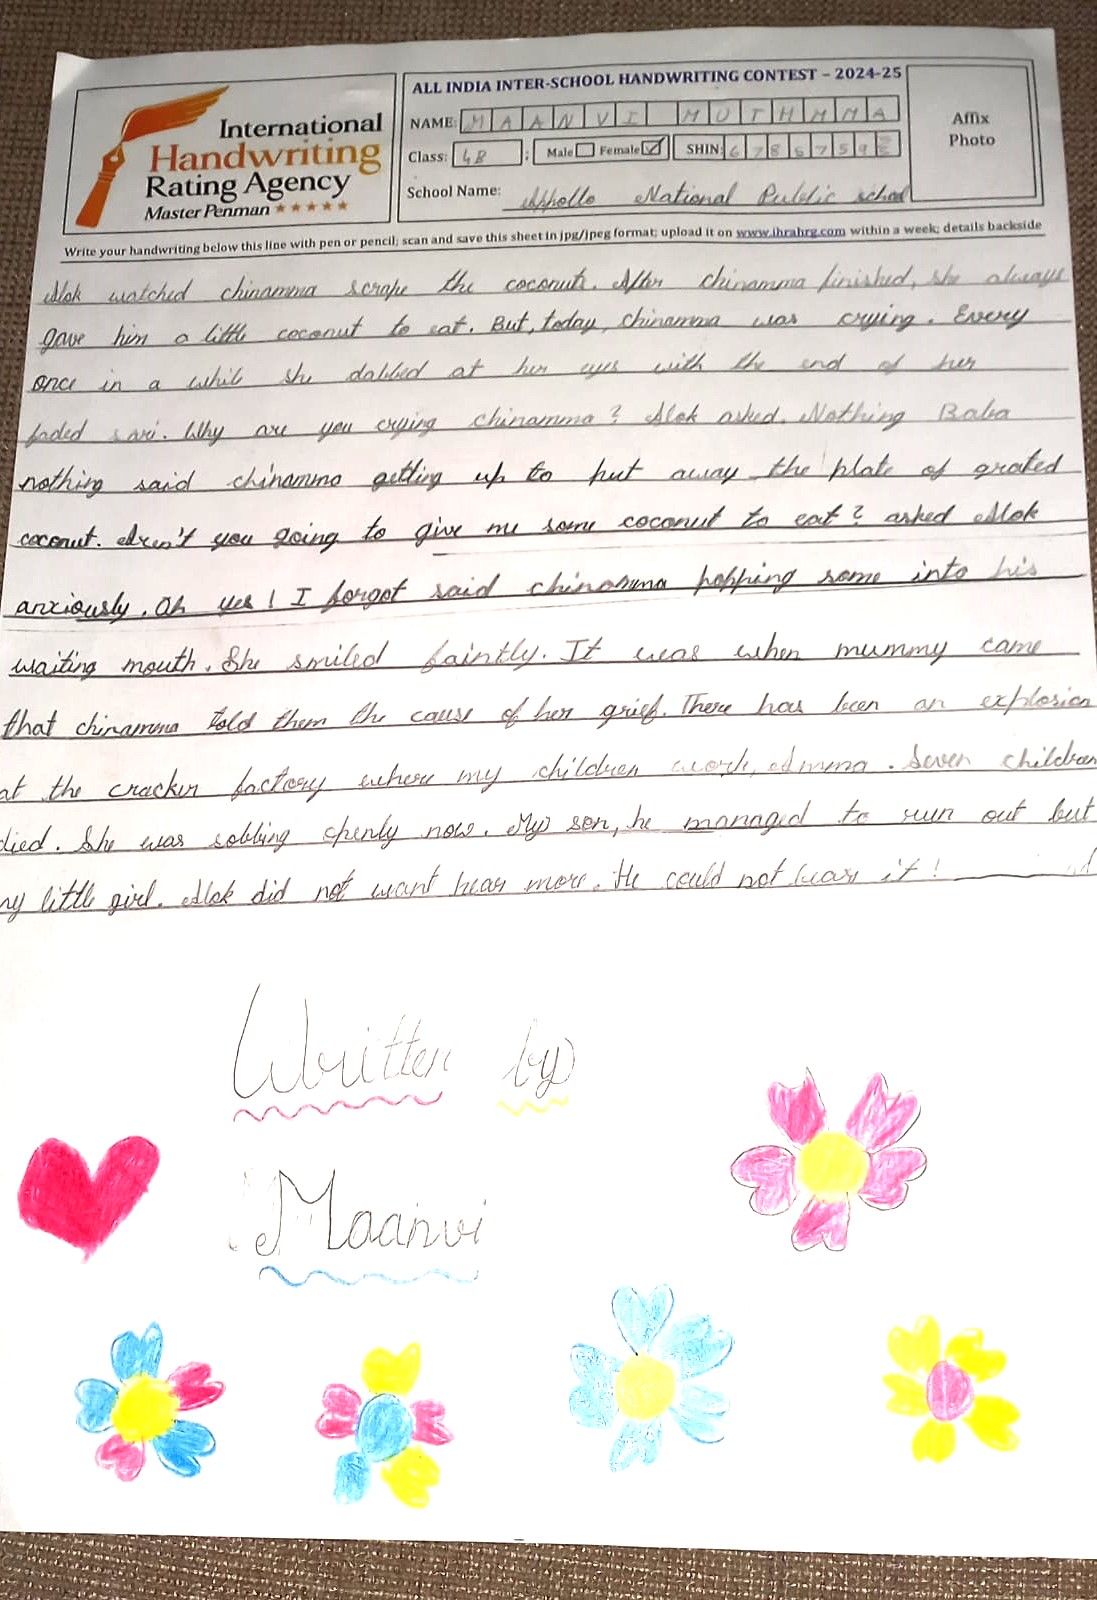 ALL INDIA INTER-SCHOOL HANDWRITING CONTEST – 2024-25
International
Handwriting
Rating Agency
Master Penman ★★★★★
NAME: MAANVI MUTHMMA
Class: 4B ; Male Female ✓ SHIN: 6785759
School Name: Apollo National Public school
Affix
Photo
Write your handwriting below this line with pen or pencil; scan and save this sheet in jpg/jpeg format; upload it on www.ihrahrg.com within a week; details backside
Alok watched chinamma scrape the coconut. After chinamma finished, she always
gave him a little coconut to eat. But, today, chinamma was crying. Every
once in a while she dabbed at her eyes with the end of her
faded sari. Why are you crying chinamma? Alok asked. Nothing Baba
nothing said chinamma getting up to put away the plate of grated
coconut. Aren't you going to give me some coconut to eat? asked Alok
anxiously. Oh yes! I forgot said chinamma popping some into his
waiting mouth. She smiled faintly. It was when mummy came
that chinamma told them the cause of her grief. There has been an explosion
at the cracker factory where my children work, Amma. Seven children
died. She was sobbing openly now. My son, he managed to run out but
my little girl. Alok did not want hear more. He could not bear it!
Written by
Maanvi